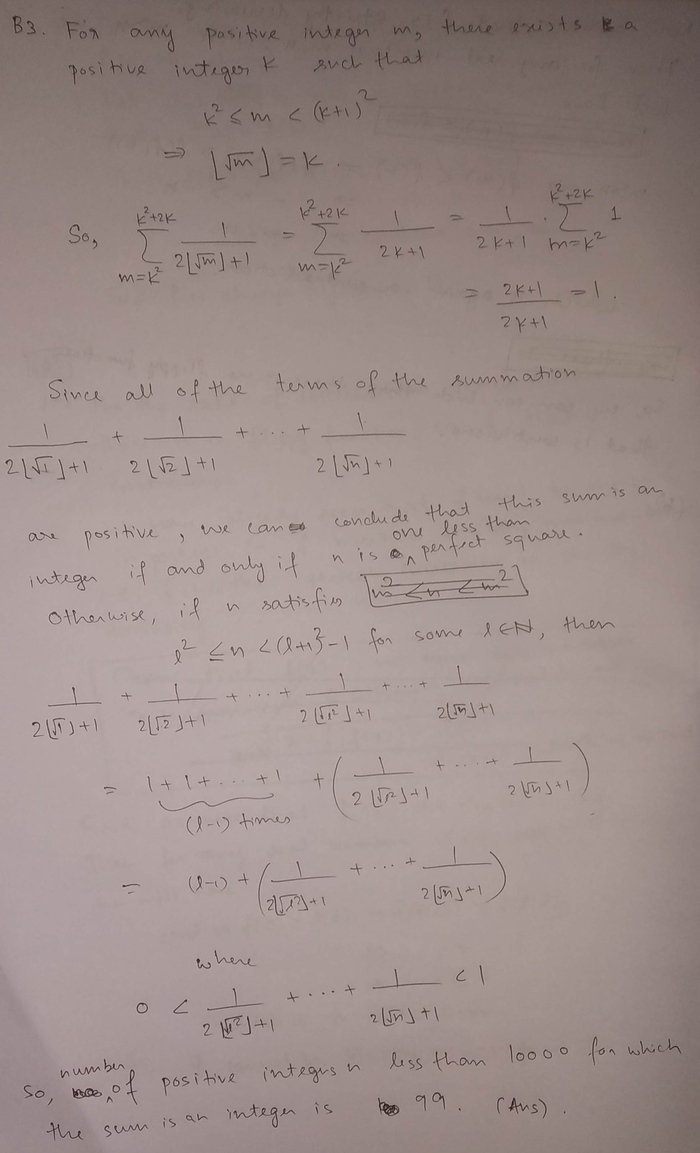 B3. For any positive integer m, there exists a
positive integer k such that
k² ≤ m < (k+1)²
⇒ ⌊√m⌋ = k.
So, ∑_{m=k²}^{k²+2k} 1/(2⌊√m⌋+1) = ∑_{m=k²}^{k²+2k} 1/(2k+1) = 1/(2k+1) · ∑_{m=k²}^{k²+2k} 1
= (2k+1)/(2k+1) = 1.
Since all of the terms of the summation
1/(2⌊√1⌋+1) + 1/(2⌊√2⌋+1) + ... + 1/(2⌊√n⌋+1)
are positive, we can conclude that this sum is an
integer if and only if n is one less than perfect square.
Otherwise, if n satisfies
l² ≤ n < (l+1)²-1 for some l ∈ ℕ, then
1/(2⌊√1⌋+1) + 1/(2⌊√2⌋+1) + ... + 1/(2⌊√l²⌋+1) + ... + 1/(2⌊√n⌋+1)
= 1+1+...+1 + (1/(2⌊√l²⌋+1) + ... + 1/(2⌊√n⌋+1))
(l-1) times
= (l-1) + (1/(2⌊√l²⌋+1) + ... + 1/(2⌊√n⌋+1))
where
0 < 1/(2⌊√l²⌋+1) + ... + 1/(2⌊√n⌋+1) < 1
So, number of positive integers n less than 10000 for which
the sum is an integer is 99. (Ans).